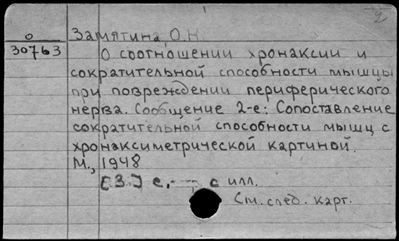 О Замятина, О.Н
30763
О соотношении хронаксии и
сократительной способности мышцы
при повреждении периферического
нерва. Сообщение 2-е: Сопоставление
сократительной способности мышц с
хронаксиметрической картиной.
М., 1948
[3] с, с илл.
См. след. карт.